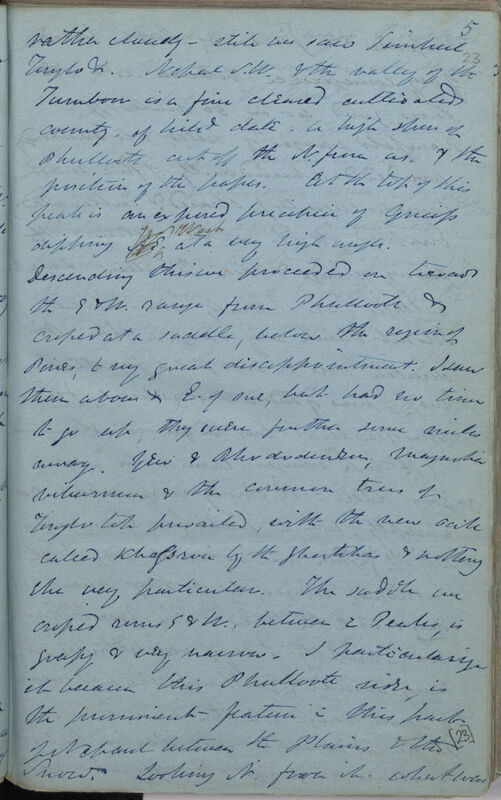 5
23
rather cloudy – still we saw Simbul
Tonglo &. Nepal S.W. & the valley of the
Tumboor is a fine cleared cultivated
country, of hills date. a high spur of
Phulloote cut off the N. from us. & the
position of the passes. At the top of this
peak is an exposed precipice of Gneiss
dipping West at a very high angle.
Descending this we proceeded on towards
the E & W. range from Phulloote &
crossed at a saddle, below the region of
Pines, to my great disappointment. I saw
them above E. of me, but had no time
to go up, they were further some miles
away. Yew & Rhododendron, Magnolia
viburnum & the common trees of
Tonglo &c prevailed, with the new oak
called by the Ghorkhas & nothing
else very particular. The saddle we
crossed runs E & W, between 2 Peaks, is
grassy & very narrow. I particularize
it because this Phulloote ridge, is
the prominent feature in this part
of between the Plains & the
Snow. Looking N. from it. what was
[23]